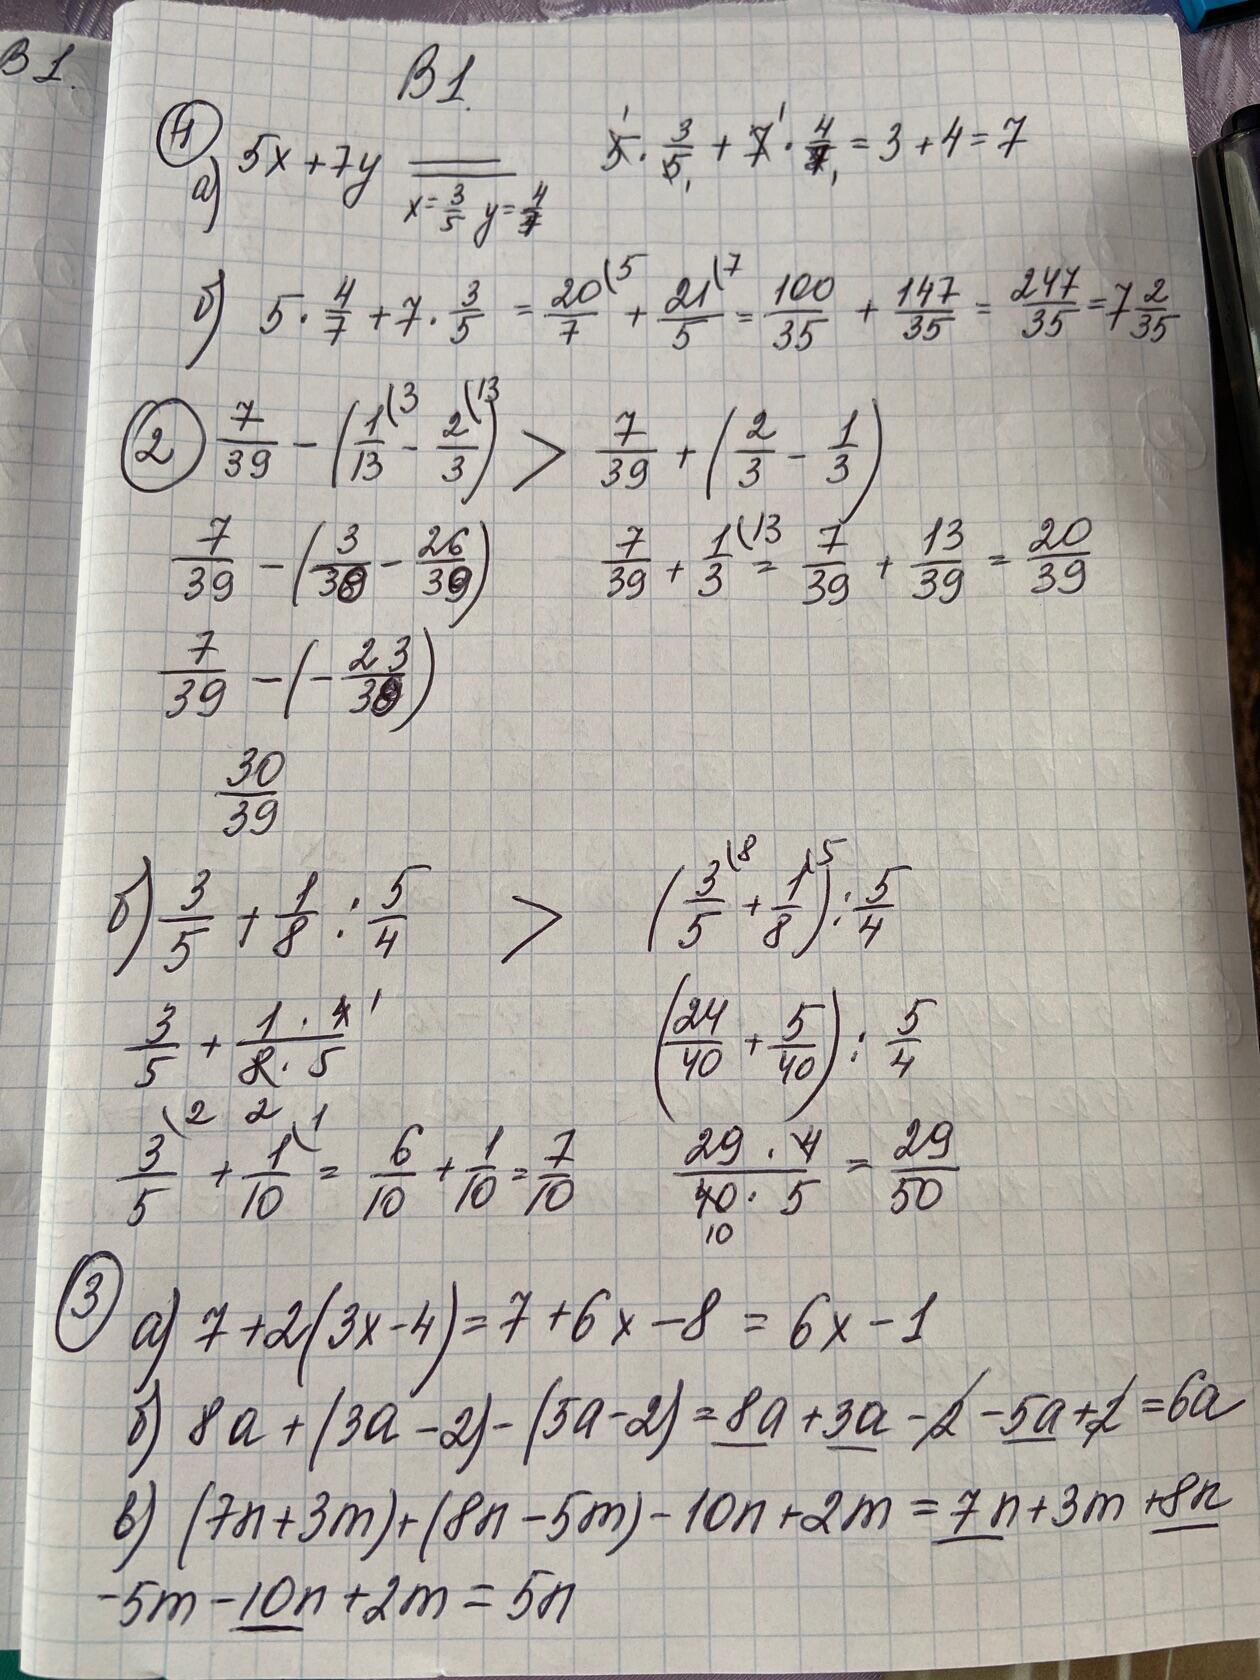 В 1.
В 1.
1
а) 5x + 7y x = 3/5 y = 4/7 5 · 3/5 + 7 · 4/7 = 3 + 4 = 7
б) 5 · 4/7 + 7 · 3/5 = 20/7 (5 + 21/5 (7 = 100/35 + 147/35 = 247/35 = 7 2/35
2 7/39 - (1/13 (3 - 2/3 (13) > 7/39 + (2/3 - 1/3)
7/39 - (3/39 - 26/39) 7/39 + 1/3 (13 = 7/39 + 13/39 = 20/39
7/39 - (- 23/39)
30/39
б) 3/5 + 1/8 : 5/4 > (3/5 (8 + 1/8 (5) : 5/4
3/5 + 1 · 4/8 · 5 (24/40 + 5/40) : 5/4
3/5 (2 + 1/10 (1 = 6/10 + 1/10 = 7/10 29 · 4/40 · 5 = 29/50
3 а) 7 + 2(3x - 4) = 7 + 6x - 8 = 6x - 1
б) 8a + (3a - 2) - (5a - 2) = 8a + 3a - 2 - 5a + 2 = 6a
в) (7n + 3m) + (8n - 5m) - 10n + 2m = 7n + 3m + 8n
- 5m - 10n + 2m = 5n